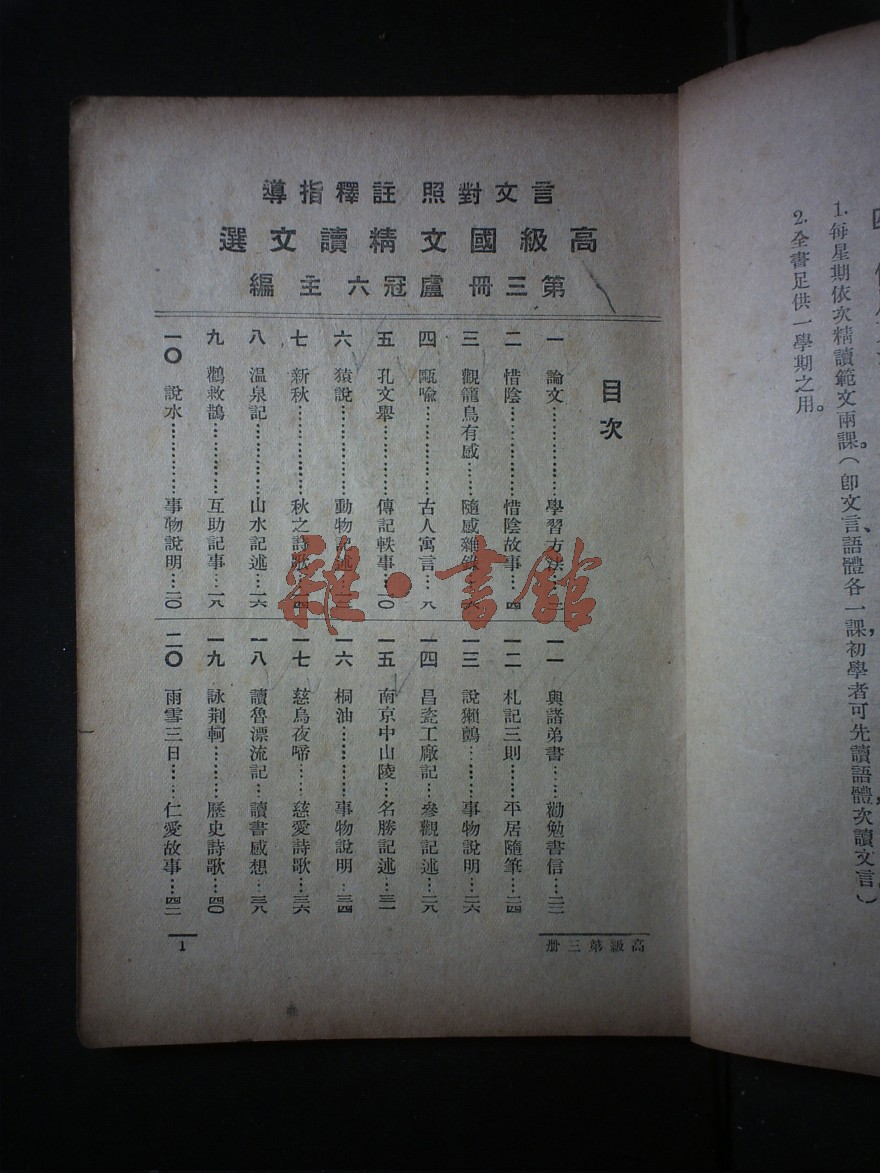 言文對照 註釋指導
高級國文精讀文選
第三冊 盧冠六 主編
目次
一 論文…………學習方法…二
二 惜陰…………惜陰故事…四
三 觀籠鳥有感……隨感雜錄…六
四 甌喩…………古人寓言…八
五 孔文舉………傳記軼事…一〇
六 猿說…………動物記述…一二
七 新秋…………秋之詩歌…一四
八 温泉記………山水記述…一六
九 鸛救鵲………互助記事…一八
一〇 說水…………事物說明…二〇
一一 與諸弟書……勸勉書信…二二
一二 札記三則……平居隨筆…二四
一三 說獺鷓……事物說明…二六
一四 昌瓷工廠記…參觀記述…二八
一五 南京中山陵…名勝記述…三一
一六 桐油…………事物說明…三四
一七 慈烏夜啼……慈愛詩歌…三六
一八 讀魯漂流記…讀書感想…三八
一九 詠荆軻………歷史詩歌…四〇
二〇 雨雪三日……仁愛故事…四二
高級第三册
1
雜·書館
1.每星期依次精讀範文兩課。(卽文言、語體各一課,初學者可先讀語體,次讀文言。)
2.全書足供一學期之用。